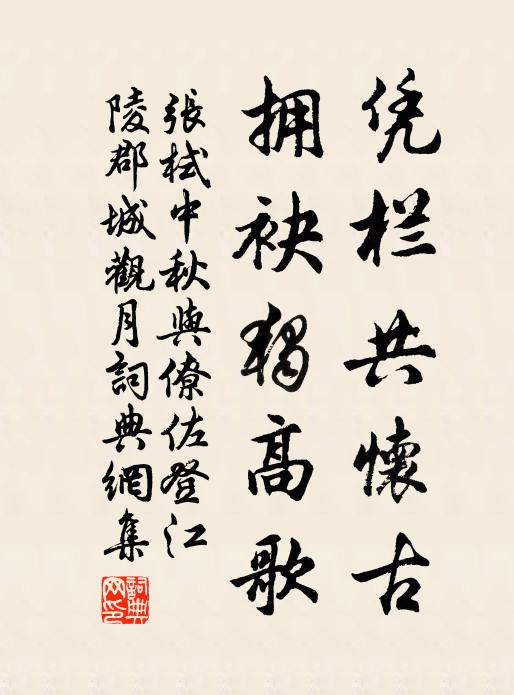 凭栏共懷古
拥袂獨高歌
張栻中秋與僚佐登江
陵郡城觀月詞典網集